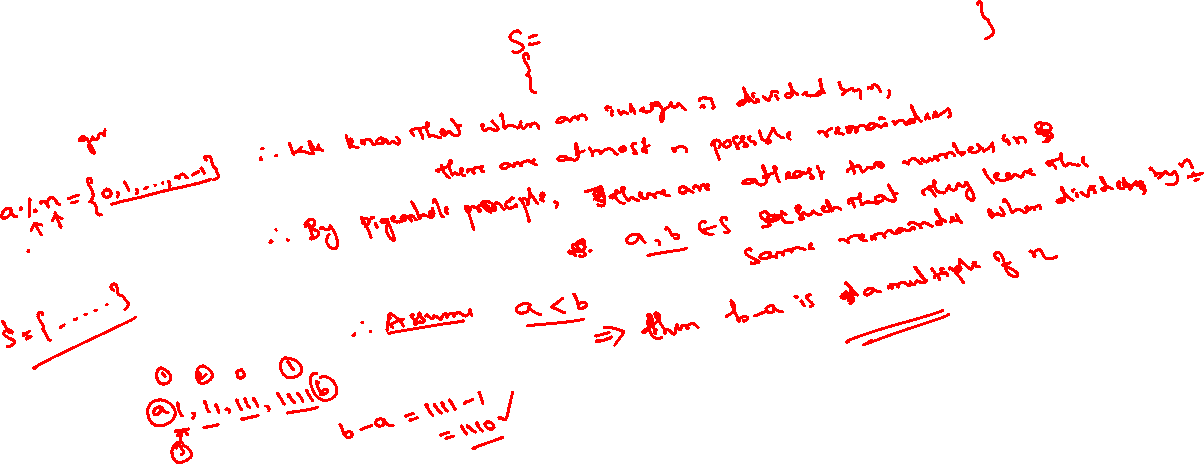 S=
{ }
∴ We know that when an integer is divided by n,
there are atmost n possible remainders
a % n = {0, 1, ..., n-1}
∴ By pigeonhole principle, there are atleast two numbers in S
a, b ∈ S such that they leave the
same remainder when divided by n
S = {......}
∴ Assume a < b
⇒ then b-a is a multiple of n
a 1, 11, 111, 1111 b
b-a = 1111-1
= 1110 ✓